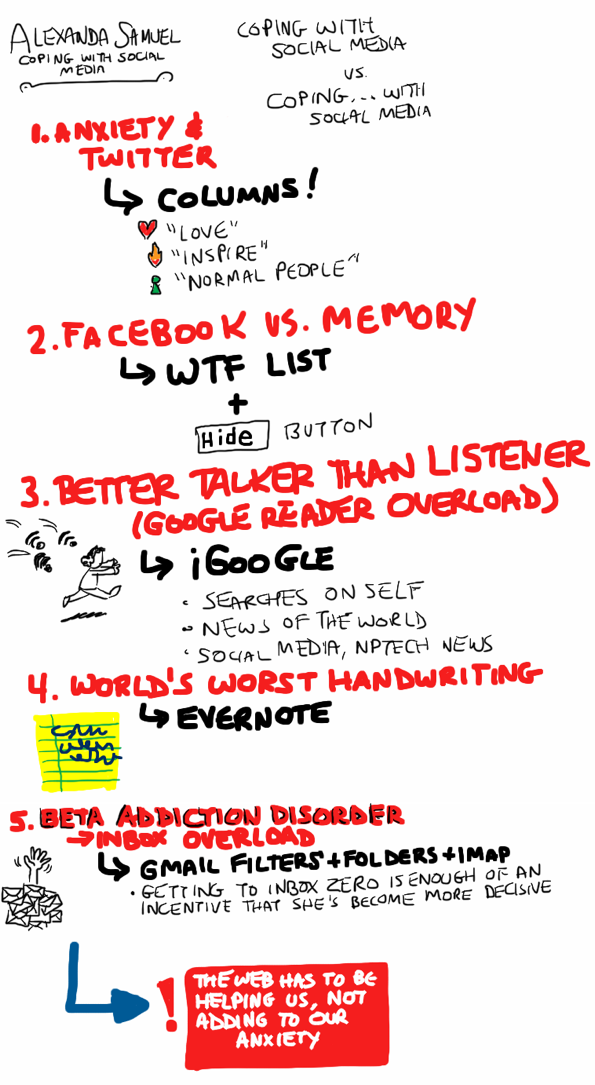 ALEXANDA SAMUEL
COPING WITH SOCIAL
MEDIA
COPING WITH
SOCIAL MEDIA
VS.
COPING... WITH
SOCIAL MEDIA
1. ANXIETY &
TWITTER
COLUMNS!
"LOVE"
"INSPIRE"
"NORMAL PEOPLE"
2. FACEBOOK VS. MEMORY
WTF LIST
+
Hide BUTTON
3. BETTER TALKER THAN LISTENER
(GOOGLE READER OVERLOAD)
iGOOGLE
• SEARCHES ON SELF
• NEWS OF THE WORLD
• SOCIAL MEDIA, NPTECH NEWS
4. WORLD'S WORST HANDWRITING
EVERNOTE
5. BETA ADDICTION DISORDER
→INBOX OVERLOAD
GMAIL FILTERS+FOLDERS+IMAP
• GETTING TO INBOX ZERO IS ENOUGH OF AN
INCENTIVE THAT SHE'S BECOME MORE DECISIVE
! THE WEB HAS TO BE
HELPING US, NOT
ADDING TO OUR
ANXIETY